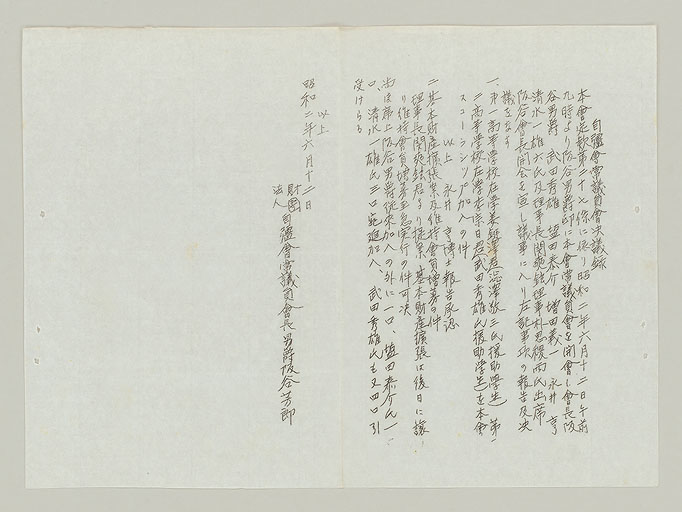 自彊會常議員會決議録
本會定款第二十七條に依り昭和二年六月十二日午前
九時より阪谷男爵邸に本會常議員會を開會し會長阪
谷男爵 武田秀雄 塩田泰介 増田義一 永井亨
清水一雄六氏及理事長関 理事朴思稷両氏出席
阪谷會長開会を宣し議事に入り左記事項の報告及決
議をなす
一、第一高等学校在学 氏援助學生 第
二高等学校在学李宗日君(武田秀雄氏援助学生)を本會
スコーラシップ加入の件
以上 永井亨博士報告承認
二、基本財産擴張案及維持會員増募の件
理事長関 君より提案 基本財産擴張は後日に譲
り維持會員増募至急実行の件可決
尚ほ席上阪谷男爵従来加入の外に一口、塩田泰介氏一
口、清水一雄氏三口宛追加入、武田秀雄氏も又四口引
受けらる
以上
昭和二年六月十二日
財団
法人 自彊會常議員會長男爵阪谷芳郎